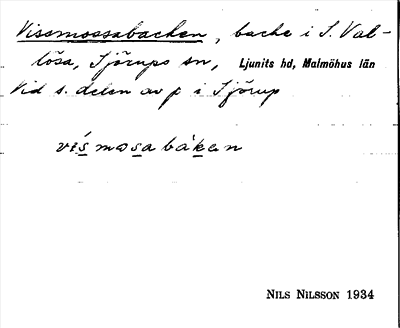 Vissmossabacken, backe i S. Val-
lösa, Sjörups sn, Ljunits hd, Malmöhus län
Vid s. delen av p i Sjörup
vísmosabákan
NILS NILSSON 1934